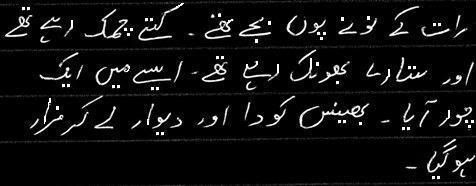 رات کے نونے پون بجے تھے۔ کتے چمک رہے تھے
اور ستارے بھونک رہے تھے۔ ایسے میں ایک
چور آیا۔ بھینس کودا اور دیوار لے کر فرار
ہوگیا۔